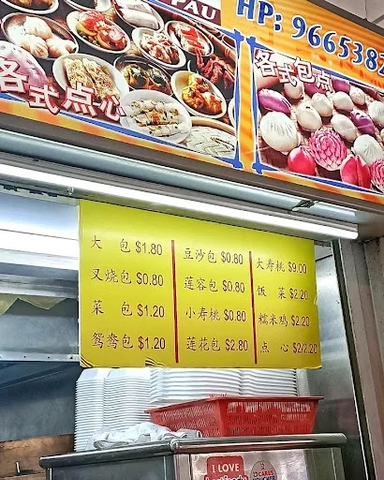 PAU
HP: 9665387
各式点心
各式包点
大 包 $1.80
叉烧包 $0.80
菜 包 $1.20
鸳鸯包 $1.20
豆沙包 $0.80
莲容包 $0.80
小寿桃 $0.80
莲花包 $2.80
大寿桃 $9.00
饭 菜 $2.20
糯米鸡 $2.20
点 心 $2/2.20
I LOVE